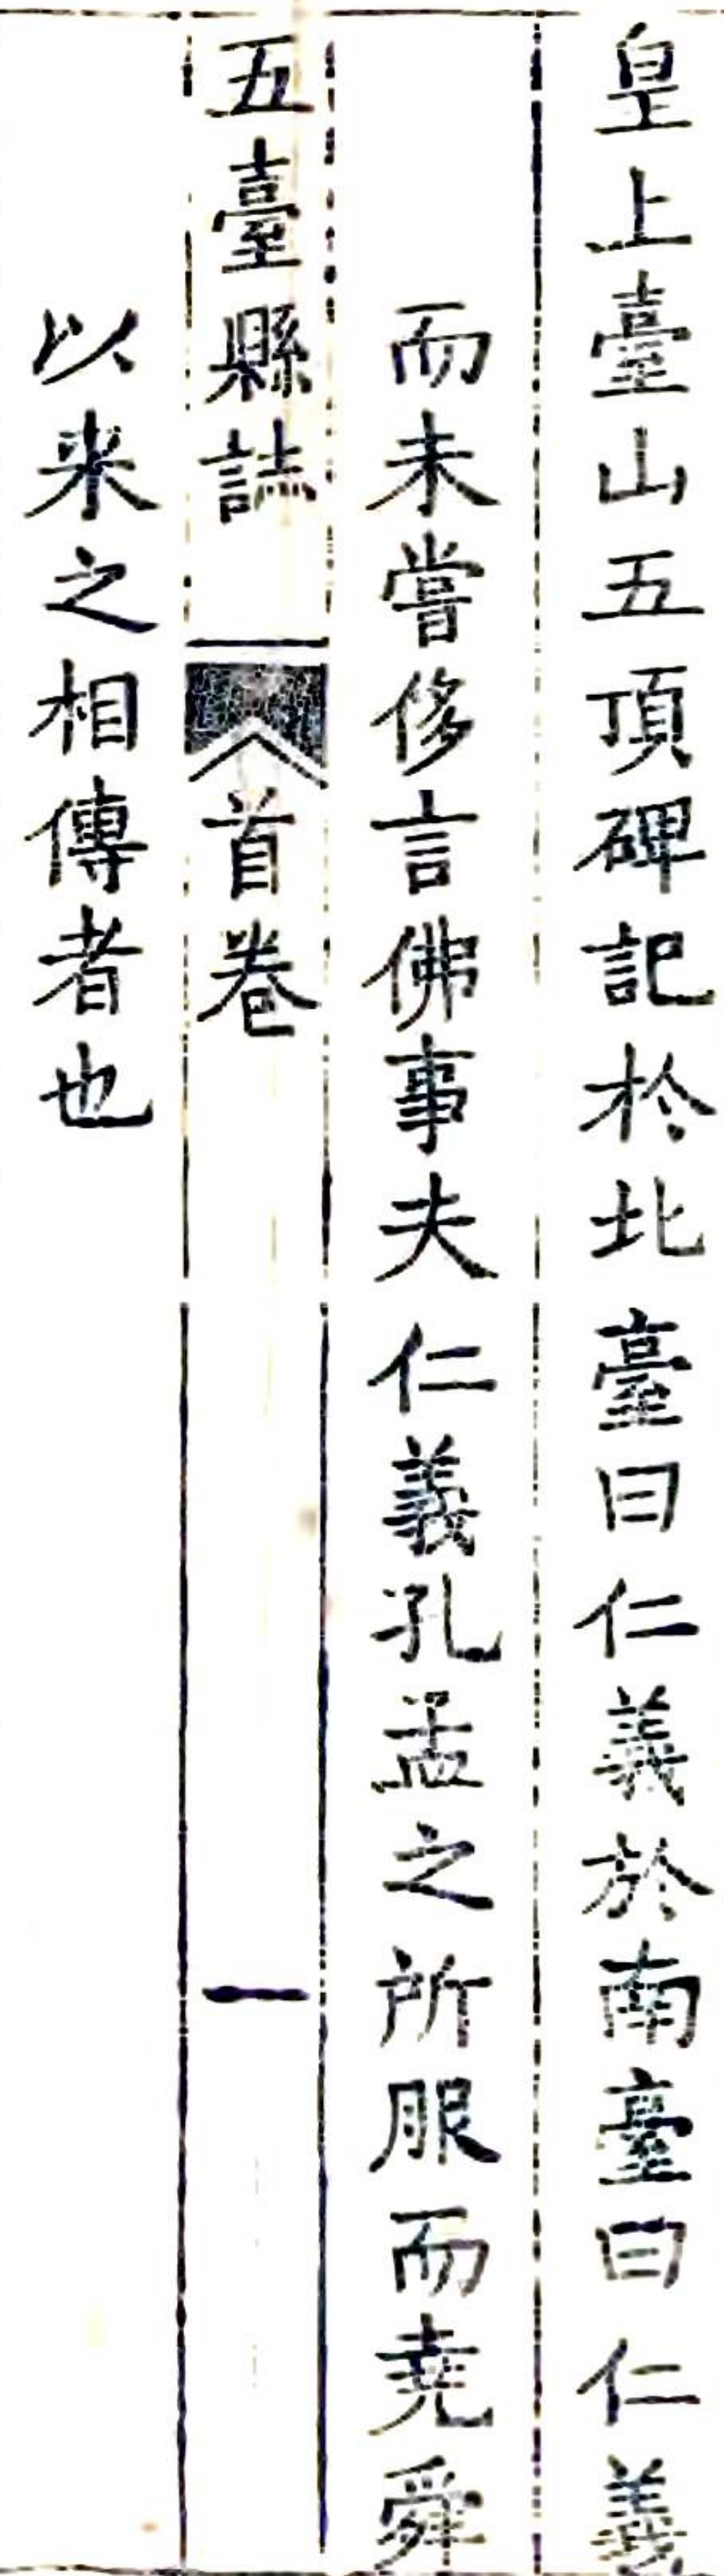 皇上臺山五頂碑記於北臺曰仁義於南臺曰仁義
而未嘗侈言佛事夫仁義孔孟之所服而堯舜
五臺縣誌 首卷 一
以来之相傳者也